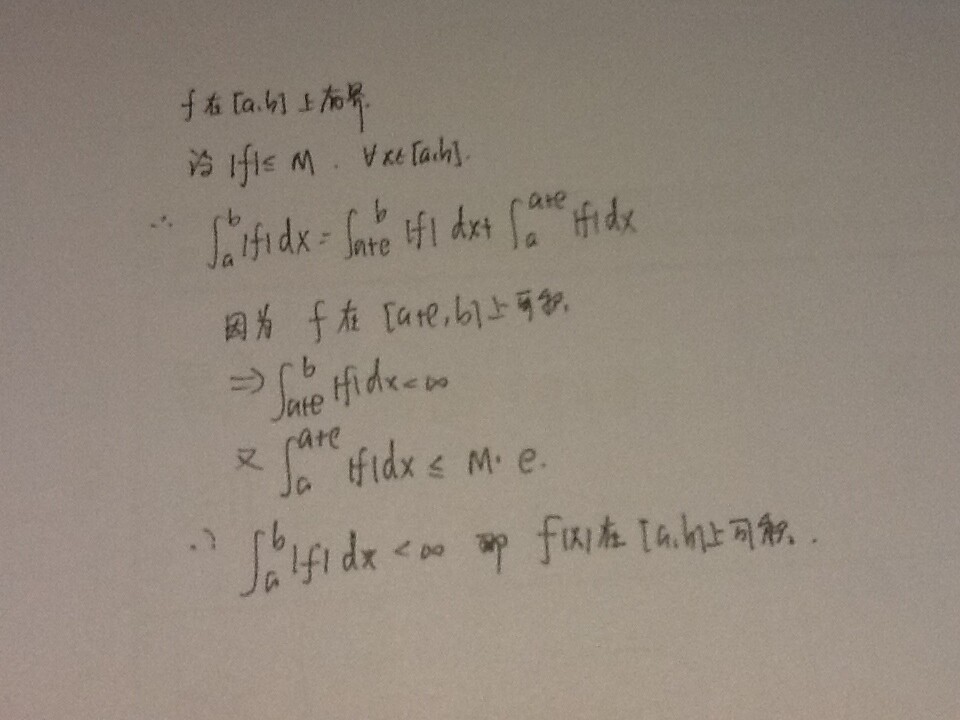 f 在 [a,b] 上有界.
设 |f| ≤ M . ∀x∈[a,b].
∴ ∫_a^b |f| dx = ∫_{a+e}^b |f| dx + ∫_a^{a+e} |f| dx
因为 f 在 [a+e, b] 上可积.
⇒ ∫_{a+e}^b |f| dx < ∞
又 ∫_a^{a+e} |f| dx ≤ M · e.
∴ ∫_a^b |f| dx < ∞ 即 f(x) 在 [a,b] 上可积.